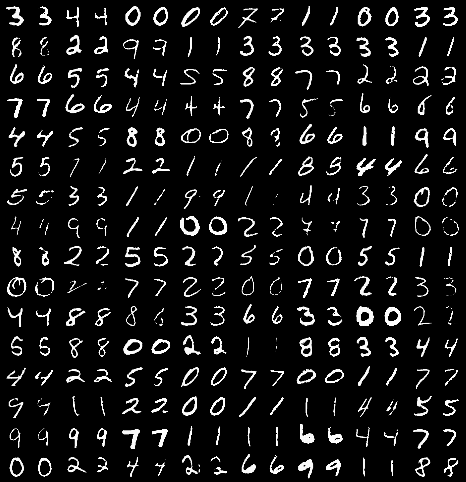 3 3 4 4 0 0 0 0 7 7 1 1 0 0 3 3
8 8 2 2 9 9 1 1 3 3 3 3 3 3 1 1
6 6 5 5 4 4 5 5 8 8 7 7 2 2 2 2
7 7 6 6 4 4 4 4 7 7 5 5 6 6 6 6
4 4 5 5 8 8 0 0 8 8 6 6 1 1 9 9
5 5 1 1 2 2 1 1 1 1 8 8 4 4 6 6
5 5 3 3 1 1 9 9 1 1 4 4 3 3 0 0
4 4 9 9 1 1 0 0 2 2 7 7 7 7 0 0
8 8 2 2 5 5 2 2 5 5 0 0 5 5 1 1
0 0 2 7 7 2 2 0 0 7 7 2 2 3 3
4 4 8 8 8 6 3 3 6 6 3 3 0 0 2 2
5 5 8 8 0 0 2 2 1 1 8 8 3 3 4 4
4 4 2 2 5 5 0 0 7 7 0 0 1 1 7 7
9 9 1 1 2 2 0 0 1 1 1 1 4 4 5 5
9 9 9 9 7 7 1 1 1 1 6 6 4 4 7 7
0 0 2 2 4 4 2 2 6 6 9 9 1 1 8 8